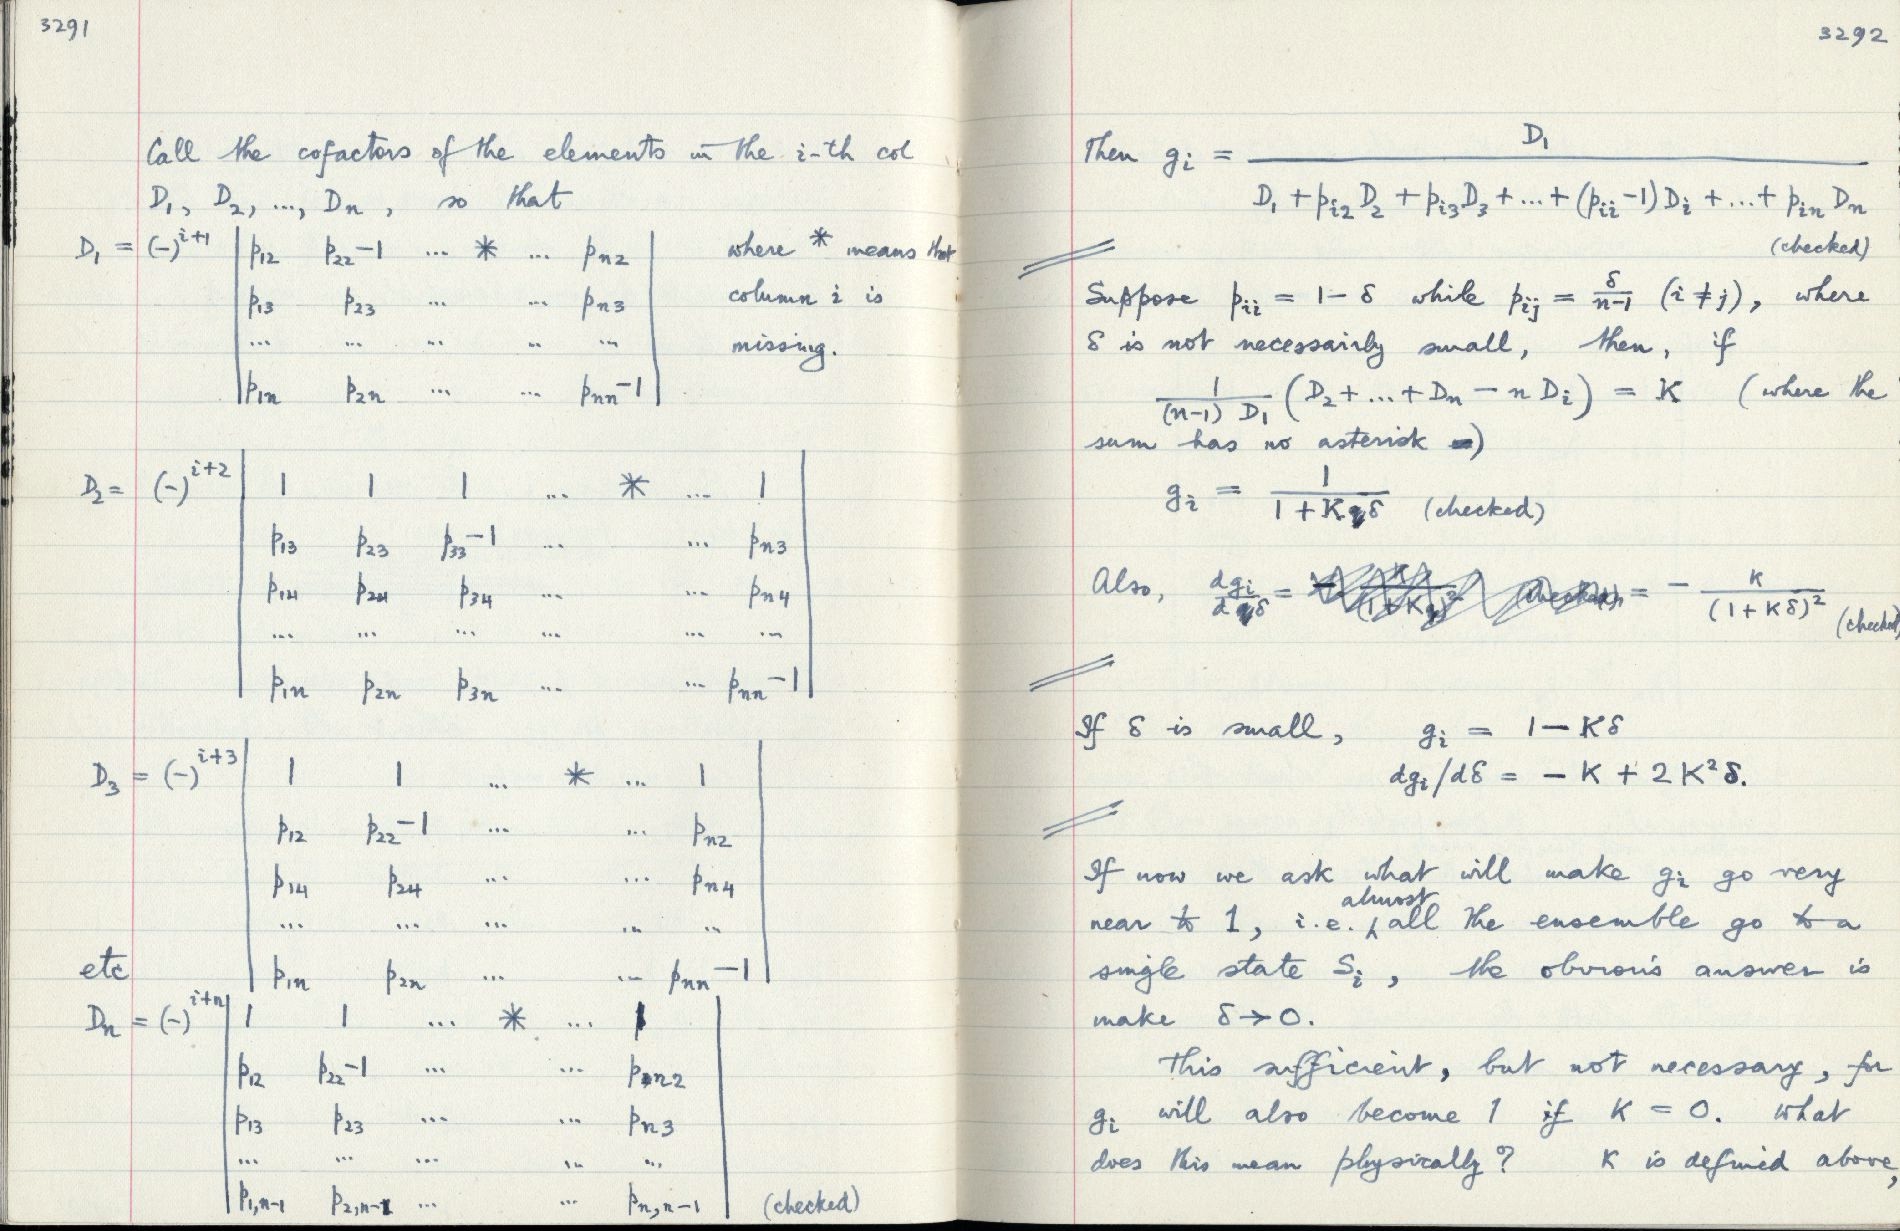 3291
Call the cofactors of the elements in the i-th col
D₁, D₂, ..., Dn, so that
D₁ = (-)^{i+1} | p₁₂ p₂₂-1 ... * ... pn2 | where * means that
| p₁₃ p₂₃ ... ... pn3 | column i is
| ... ... ... ... ... | missing.
| p1n p2n ... ... pnn-1 |
D₂ = (-)^{i+2} | 1 1 1 ... * ... 1 |
| p₁₃ p₂₃ p₃₃-1 ... ... pn3 |
| p₁₄ p₂₄ p₃₄ ... ... pn4 |
| ... ... ... ... ... ... |
| p1n p2n p3n ... ... pnn-1 |
D₃ = (-)^{i+3} | 1 1 ... * ... 1 |
| p₁₂ p₂₂-1 ... ... pn2 |
| p₁₄ p₂₄ ... ... pn4 |
| ... ... ... ... ... |
etc | p1n p2n ... ... pnn-1 |
Dn = (-)^{i+n} | 1 1 ... * ... 1 |
| p₁₂ p₂₂-1 ... ... pn2 |
| p₁₃ p₂₃ ... ... pn3 |
| ... ... ... ... ... |
| p1,n-1 p2,n-1 ... ... pn,n-1 | (checked)
3292
Then gi = D₁ / (D₁ + pi2 D₂ + pi3 D₃ + ... + (pii-1) Di + ... + pin Dn)
(checked)
Suppose pii = 1-δ while pij = δ/(n-1) (i ≠ j), where
δ is not necessairly small, then, if
1/((n-1) D₁) (D₂ + ... + Dn - n Di) = K (where the
sum has no asterisk)
gi = 1/(1 + Kδ) (checked)
Also, dgi/dδ = = - K/(1 + Kδ)² (checked)
If δ is small, gi = 1 - Kδ
dgi/dδ = - K + 2K²δ.
If now we ask what will make gi go very
near to 1, i.e. almost all the ensemble go to a
single state Si, the obvious answer is
make δ → 0.
This sufficient, but not necessary, for
gi will also become 1 if K = 0. What
does this mean physically? K is defined above,